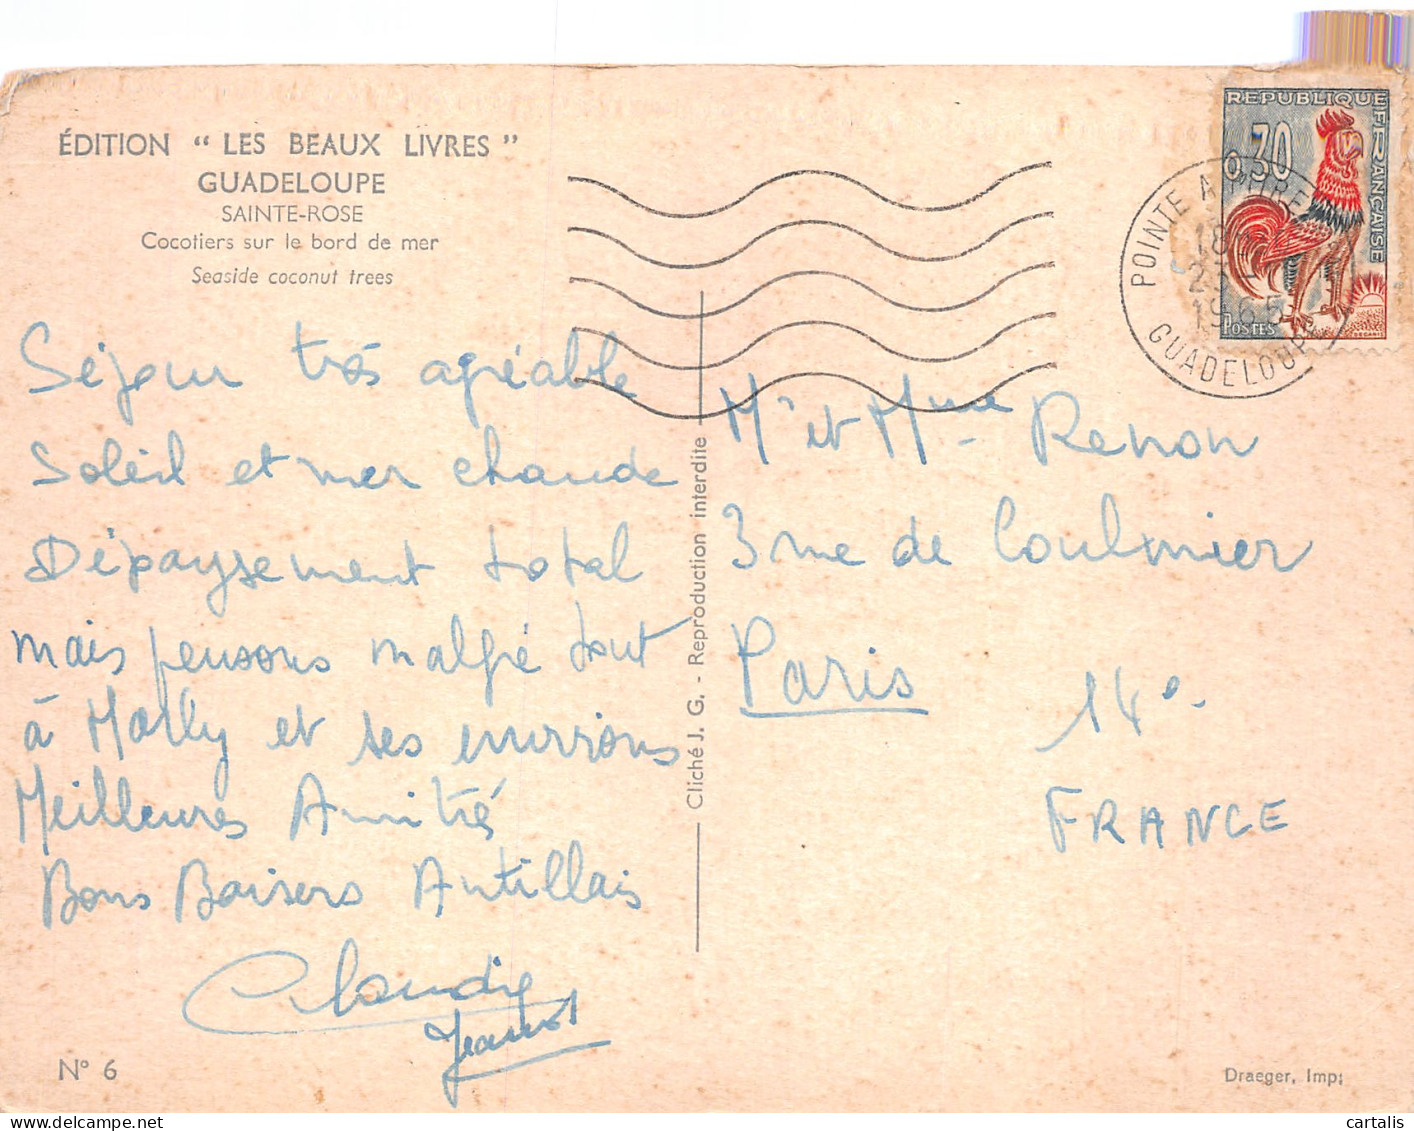 ÉDITION “ LES BEAUX LIVRES ”
GUADELOUPE
SAINTE-ROSE
Cocotiers sur le bord de mer
Seaside coconut trees
Séjour très agréable
Soleil et mer chaude
Dépaysement total
mais pensons malgré tout
à Marly et ses environs
Meilleures Amitiés
Bons Baisers Antillais
Claudie
Jeannot
N° 6
Cliché J. G. - Reproduction interdite
REPUBLIQUE FRANÇAISE
0,30
POSTES
POINTE A PITRE
18
23
1965
GUADELOUPE
Mr et Mme Renon
3 rue de Coulmier
Paris 14e
FRANCE
Draeger, Imp.
www.cartalis.com